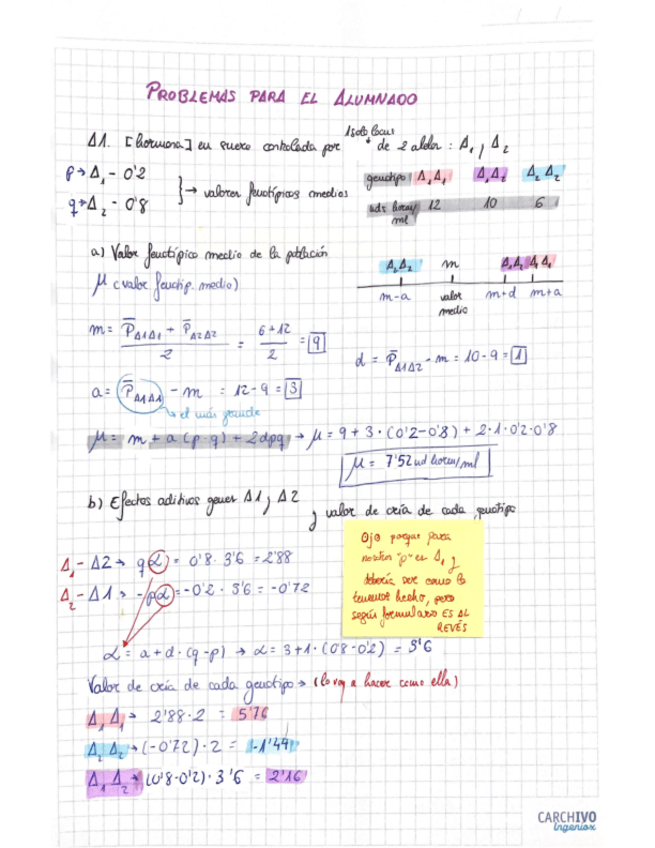 PROBLEMAS PARA EL ALUMNADO
A1. [hormona] en suero controlada por 1 solo locus de 2 alelos: A1 y A2
p → A1 - 0'2
q → A2 - 0'8
} → valores fenotípicos medios
genotipo A1A1 A1A2 A2A2
uds horm/ml 12 10 6
a) Valor fenotípico medio de la población
μ (valor fenotíp. medio)
A2A2 m A1A2 A1A1
m-a valor medio m+d m+a
m = P̄A1A1 + P̄A2A2 / 2 = 6+12 / 2 = 9
d = P̄A1A2 - m = 10-9 = 1
a = P̄A1A1 - m = 12-9 = 3
→ el más grande
μ = m + a (p-q) + 2dpq → μ = 9 + 3·(0'2-0'8) + 2·1·0'2·0'8
μ = 7'52 ud horm/ml
b) Efectos aditivos genes A1 y A2 y valor de cría de cada genotipo
A1 - A2 → qα = 0'8·3'6 = 2'88
A2 - A1 → -pα = -0'2·3'6 = -0'72
Ojo porque para
nosotros "p" es A1 y
debería ser como lo
tenemos hecho, pero
según formulario ES AL
REVÉS
α = a + d·(q-p) → α = 3+1·(0'8-0'2) = 3'6
Valor de cría de cada genotipo → (lo voy a hacer como ella)
A1 A1 → 2'88·2 = 5'76
A2 A2 → (-0'72)·2 = -1'44
A1 A2 → (0'8-0'2)·3'6 = 2'16
CARCHIVO
ingeniox